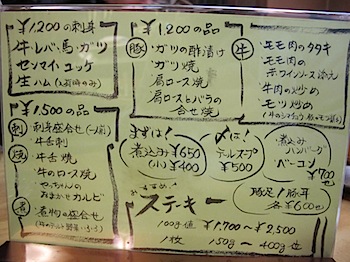 ¥1,200の刺身
牛レバ・馬・ガツ
センマイ・ユッケ
生ハム(入荷時のみ)
¥1,500の品
刺 刺身盛合せ(一人前)
・牛舌刺
焼 ・牛舌焼
・牛のロース焼
・やっちゃんの
おまかせカルビ
煮 ・煮物の盛合せ
¥1,200の品
豚 ・ガツの酢漬け
・ガツ焼
・肩ロース焼
・肩ロースとバラの
合せ焼
牛 ・モモ肉のタタキ
・モモ肉の
赤ワインソース添え
・牛肉の炒め
・モツ炒め
まずは!
煮込み ¥650
(小) ¥400
〆は!
テールスープ
¥500
煮込み
ハンバーグ
ベーコン
¥700
おすすめ!
ステーキ
豚足/豚耳
各¥600
100g位 ¥1,700〜¥2,500
1枚 150g〜400g位